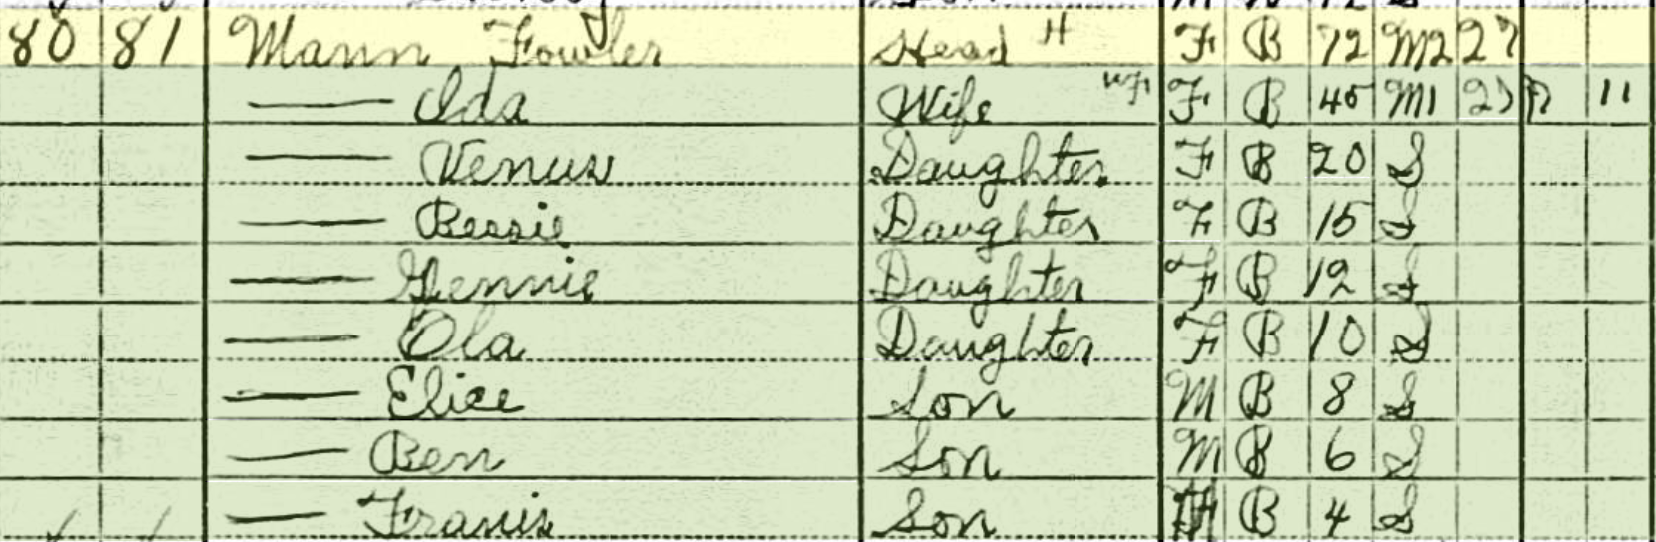 80 81 Mann Fowler Head H F B 72 M2 27
— Ida Wife F B 45 M1 27 11
— Venus Daughter F B 20 S
— Bessie Daughter F B 15 S
— Gennie Daughter F B 12 S
— Ola Daughter F B 10 S
— Elice Son M B 8 S
— Ben Son M B 6 S
— Franis Son B 4 S